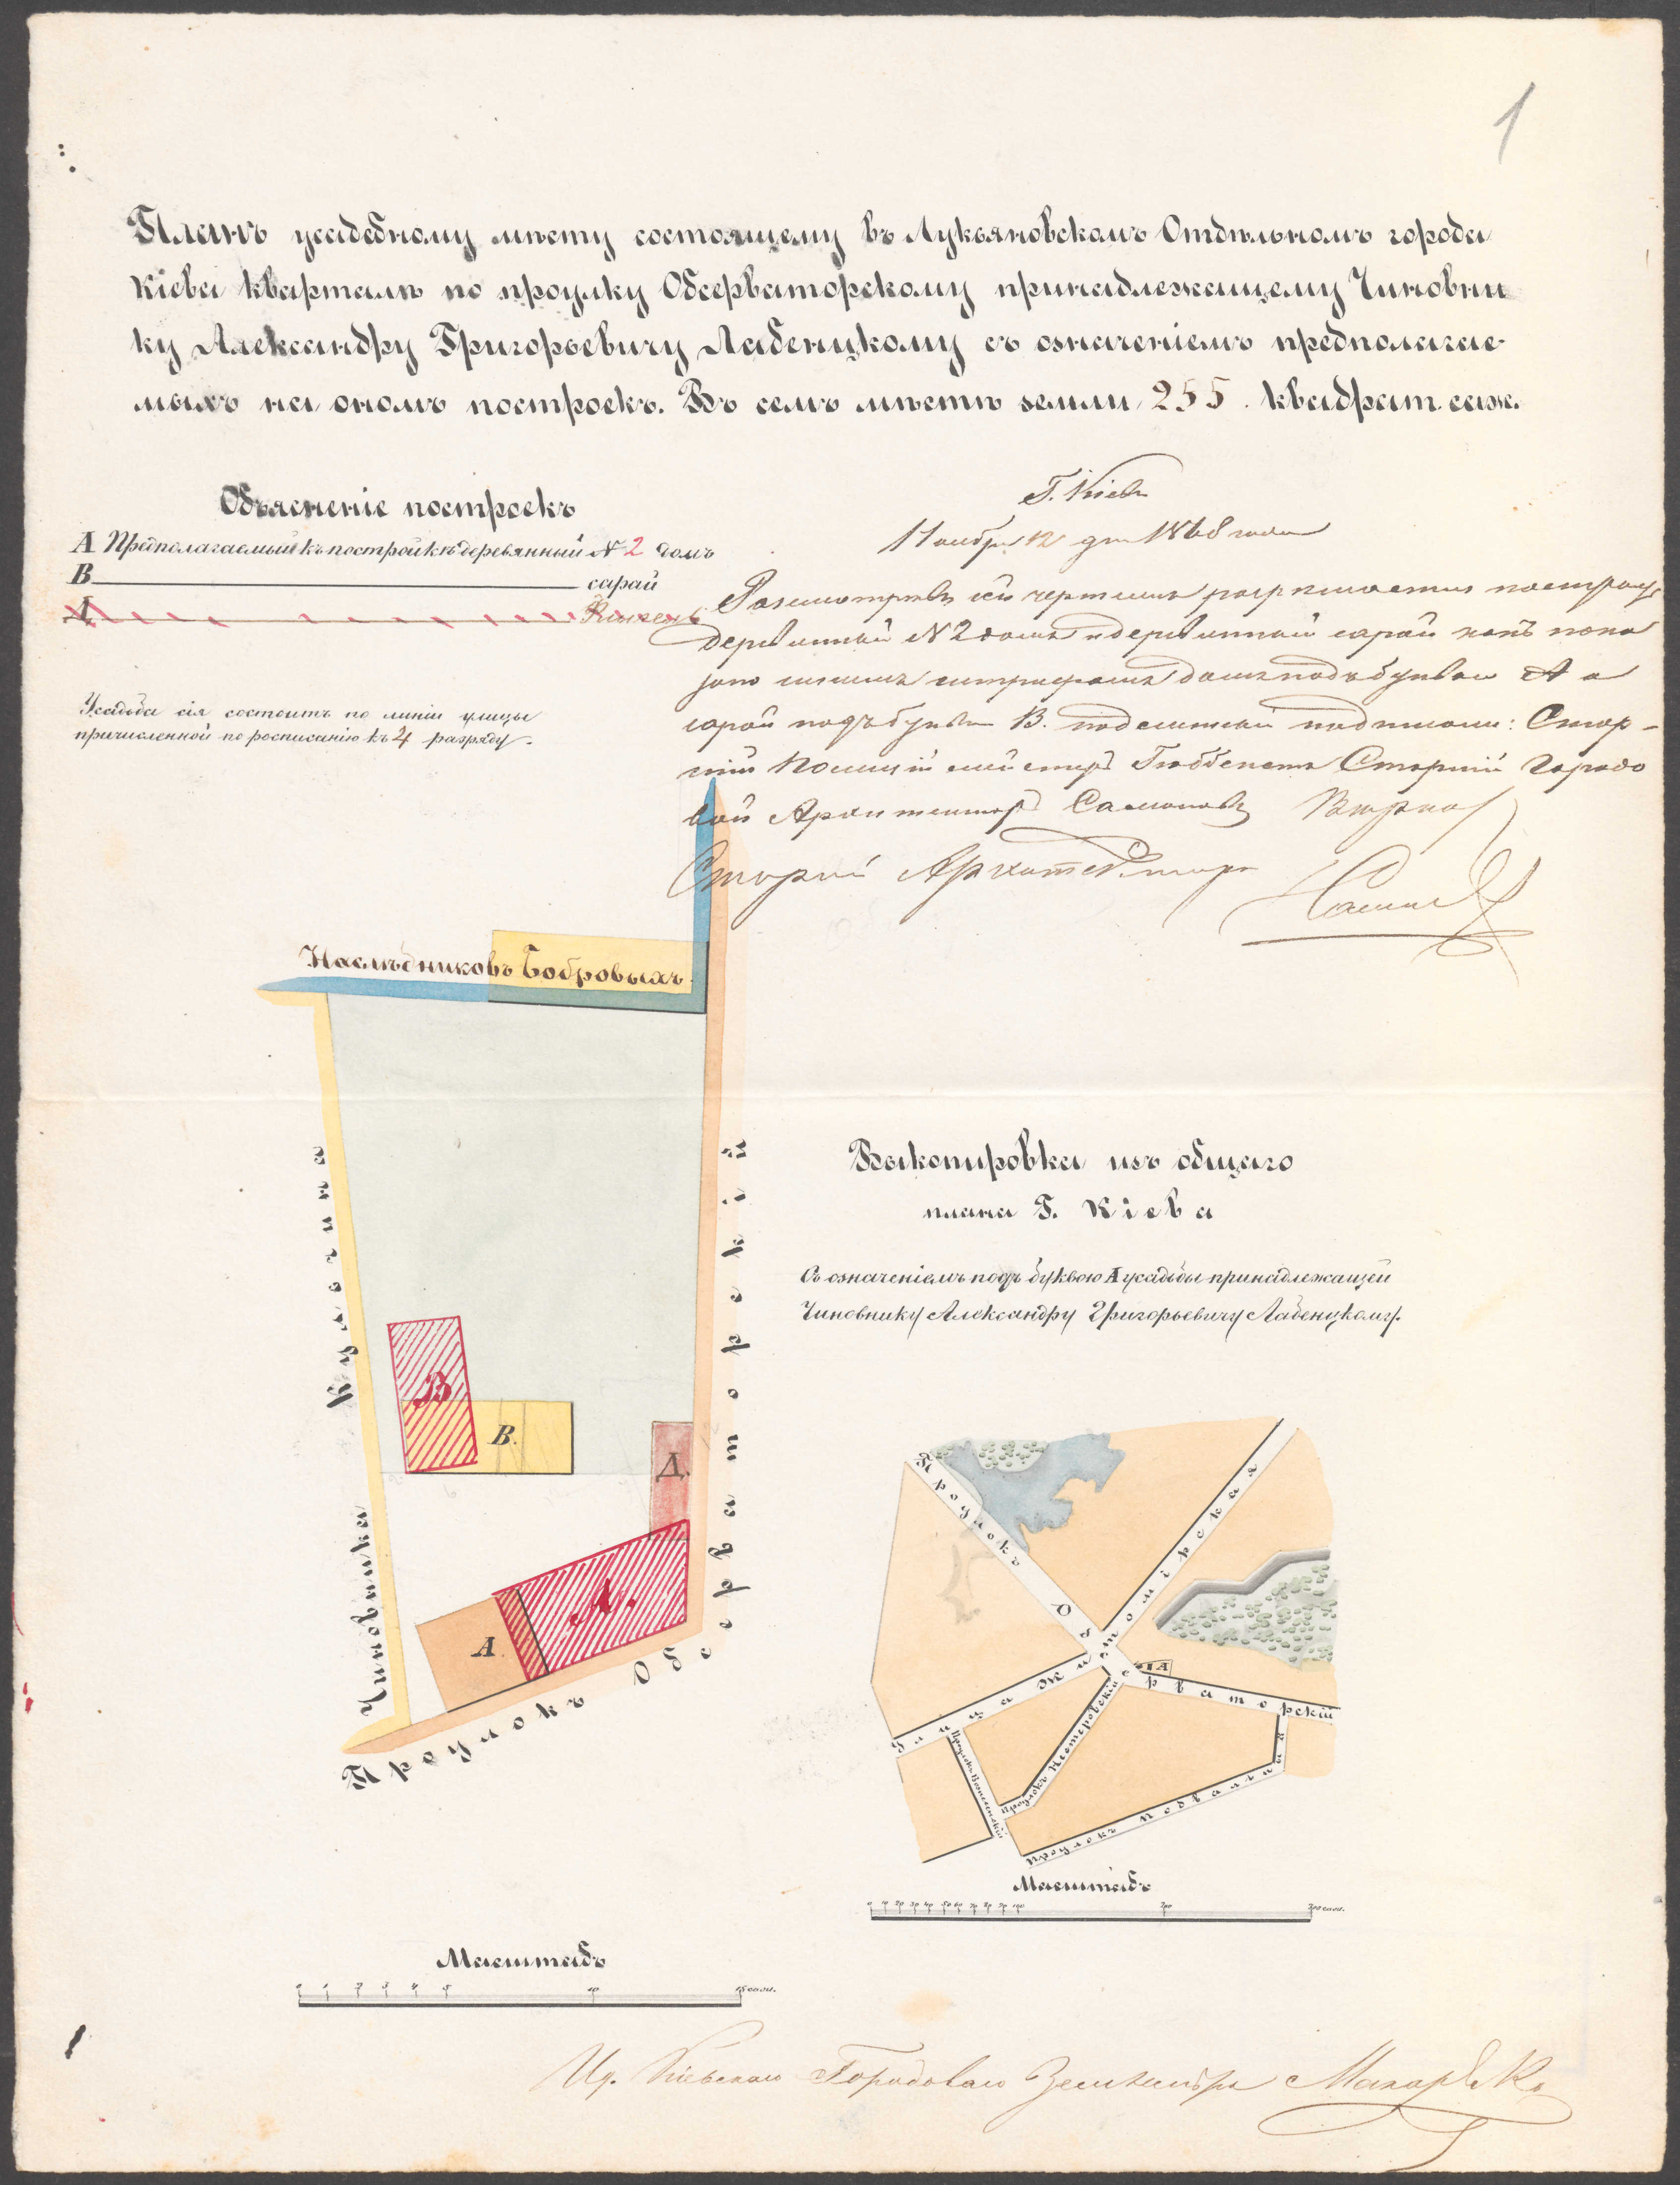 1
Планъ усадебному мѣсту состоящему въ Лукьяновскомъ Отдѣльномъ города
Кіева кварталѣ по проулку Обсерваторскому принадлежащему Чиновни
ку Александру Григорьевичу Лабенцкому съ означеніемъ предполагае-
мыхъ на ономъ построекъ. Въ семъ мѣстѣ земли 255. квадрат. саж.
Объясненіе построекъ
А Предполагаемый къ постройкѣ деревянный № 2 домъ
В сарай
Усадьба сія состоитъ по линіи улицы
причисленной по росписанію къ 4 разряду.
Г. Кіевъ
Ноября 12 дня 1868 года
Разсмотрѣвъ сей чертежъ разрѣшается
деревянный №2 домъ и деревянный сарай какъ пока
зано домъ подъ буквою А а
сарай подъ буквою В. подлинный подписали: Стар-
шій Полиціймейстеръ Гюббенетъ Старшій Городо
вой Архитекторъ Вѣрно
Старшій Архитекторъ
Наслѣдниковъ Бобровыхъ
Чиновника
В
В.
Д.
А.
А.
Проулокъ Обсерваторскій
Выкопировка изъ общаго
плана Г. Кіева
Съ означеніемъ подъ буквою А усадьбы принадлежащей
Чиновнику Александру Григорьевичу Лабенцкому.
Проулокъ Обсерваторскій
Улица Житомірская
А
Проулокъ Нестеровскій
Проулокъ Подвальный
Масштабъ
0 10 20 30 40 50 60 70 80 90 100 200 300 саж.
Масштабъ
0 1 2 3 4 5 10 15 саж.
Кіевскаго Городоваго Землемѣра